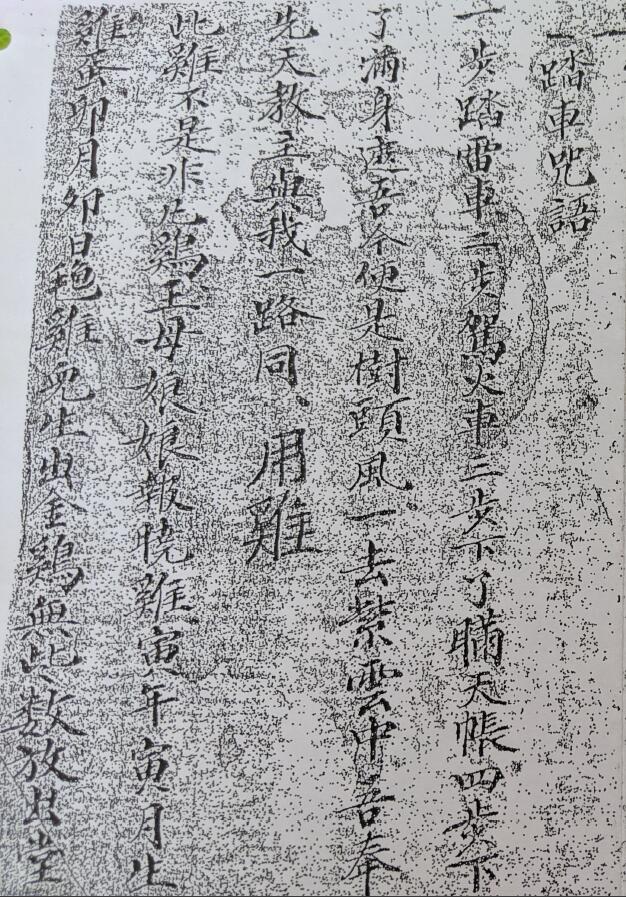 一踏車咒語
一步踏雷車二步駕火車三步下了瞞天帳四步下
了滿身遮吾今便是樹頭風一去紫雲中吾奉
先天教主與我一路同、用雞
此雞不是非凡鷄王母娘娘報曉雞寅年寅月生
雞蛋卯月卯日雞兒生出金鷄無比数放出堂